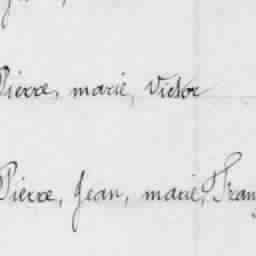 Pierre, marie, Victor
Pierre, Jean, marie, Franç